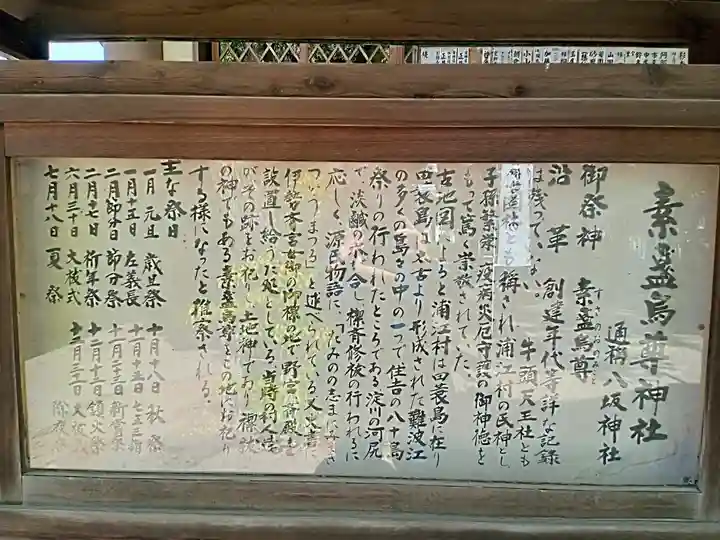 素盞烏尊神社
通稱八坂神社
御祭神 素盞烏尊
すさのおのみこと
沿革 創建年代等詳な記録
は残っていない 牛頭天王社とも
とも称され浦江村の氏神とし
子孫繁栄 疫病災厄守護の御神徳を
もって篤く崇敬されてきた
古地図によると浦江村は田蓑島に在り
田蓑島は太古より形成された難波江
の多くの島々の中の一つで住吉の八十島
祭りの行われたところである淀川の河尻
で淡鹹の
応しく源氏物語に「たみのの
と述べられている
伊勢斎宮
設置し給うた処としている 当時の
がその跡をお祀りし土地神であり
の神でもある素盞烏尊をこの地にお祀り
する様になったと推察される
主な祭日
一月元旦 歳旦祭
一月十五日 左義長
二月節分日 節分祭
二月十七日 祈年祭
六月三十日 大祓式
七月十八日 夏祭
十月十八日 秋祭
十一月十五日 七五三詣
十一月二十三日 新嘗祭
十二月十三日 鎮火祭
十二月三十一日 大祓式
除夜祭